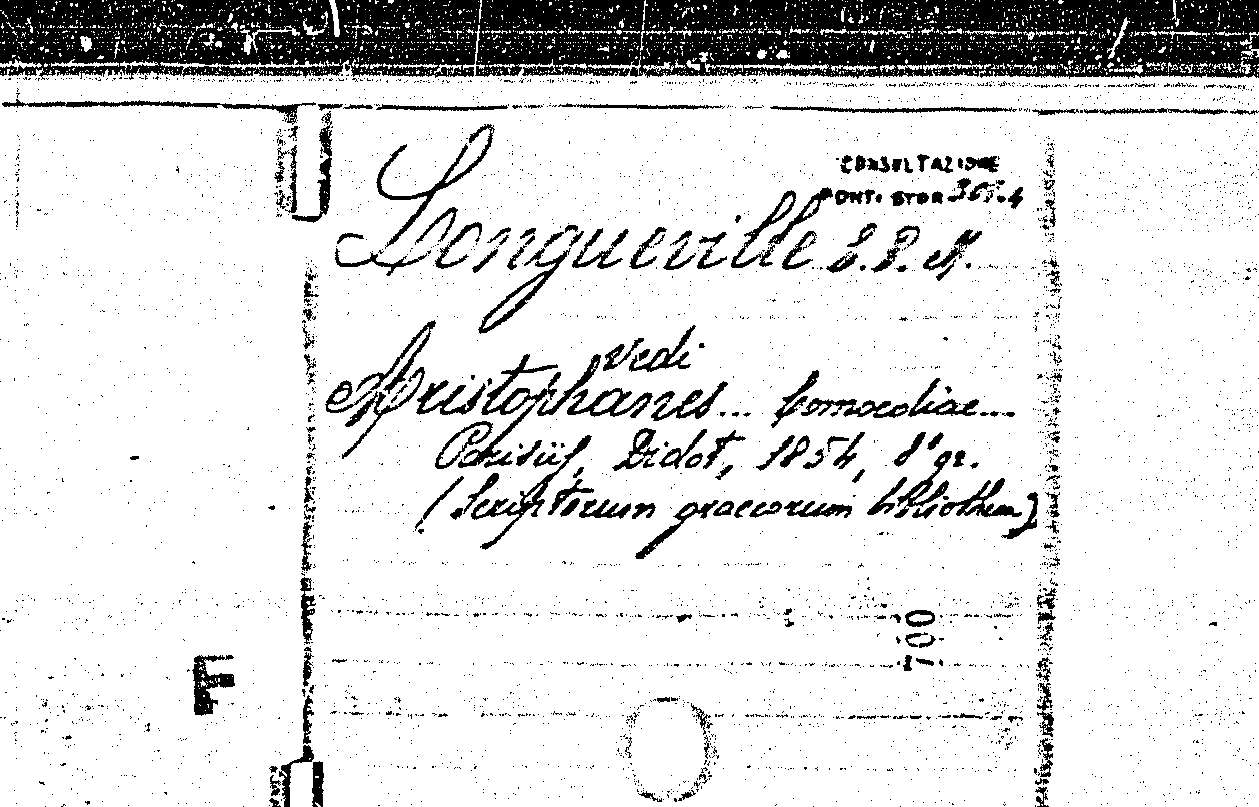 CONSULTAZIONE
FONTI STOR
Longueville E. P. M.
vedi
Aristophanes... Comoediae...
Parisiis, Didot, 1854, 8° gr.
(Scriptorum graecorum bibliotheca)
700
F